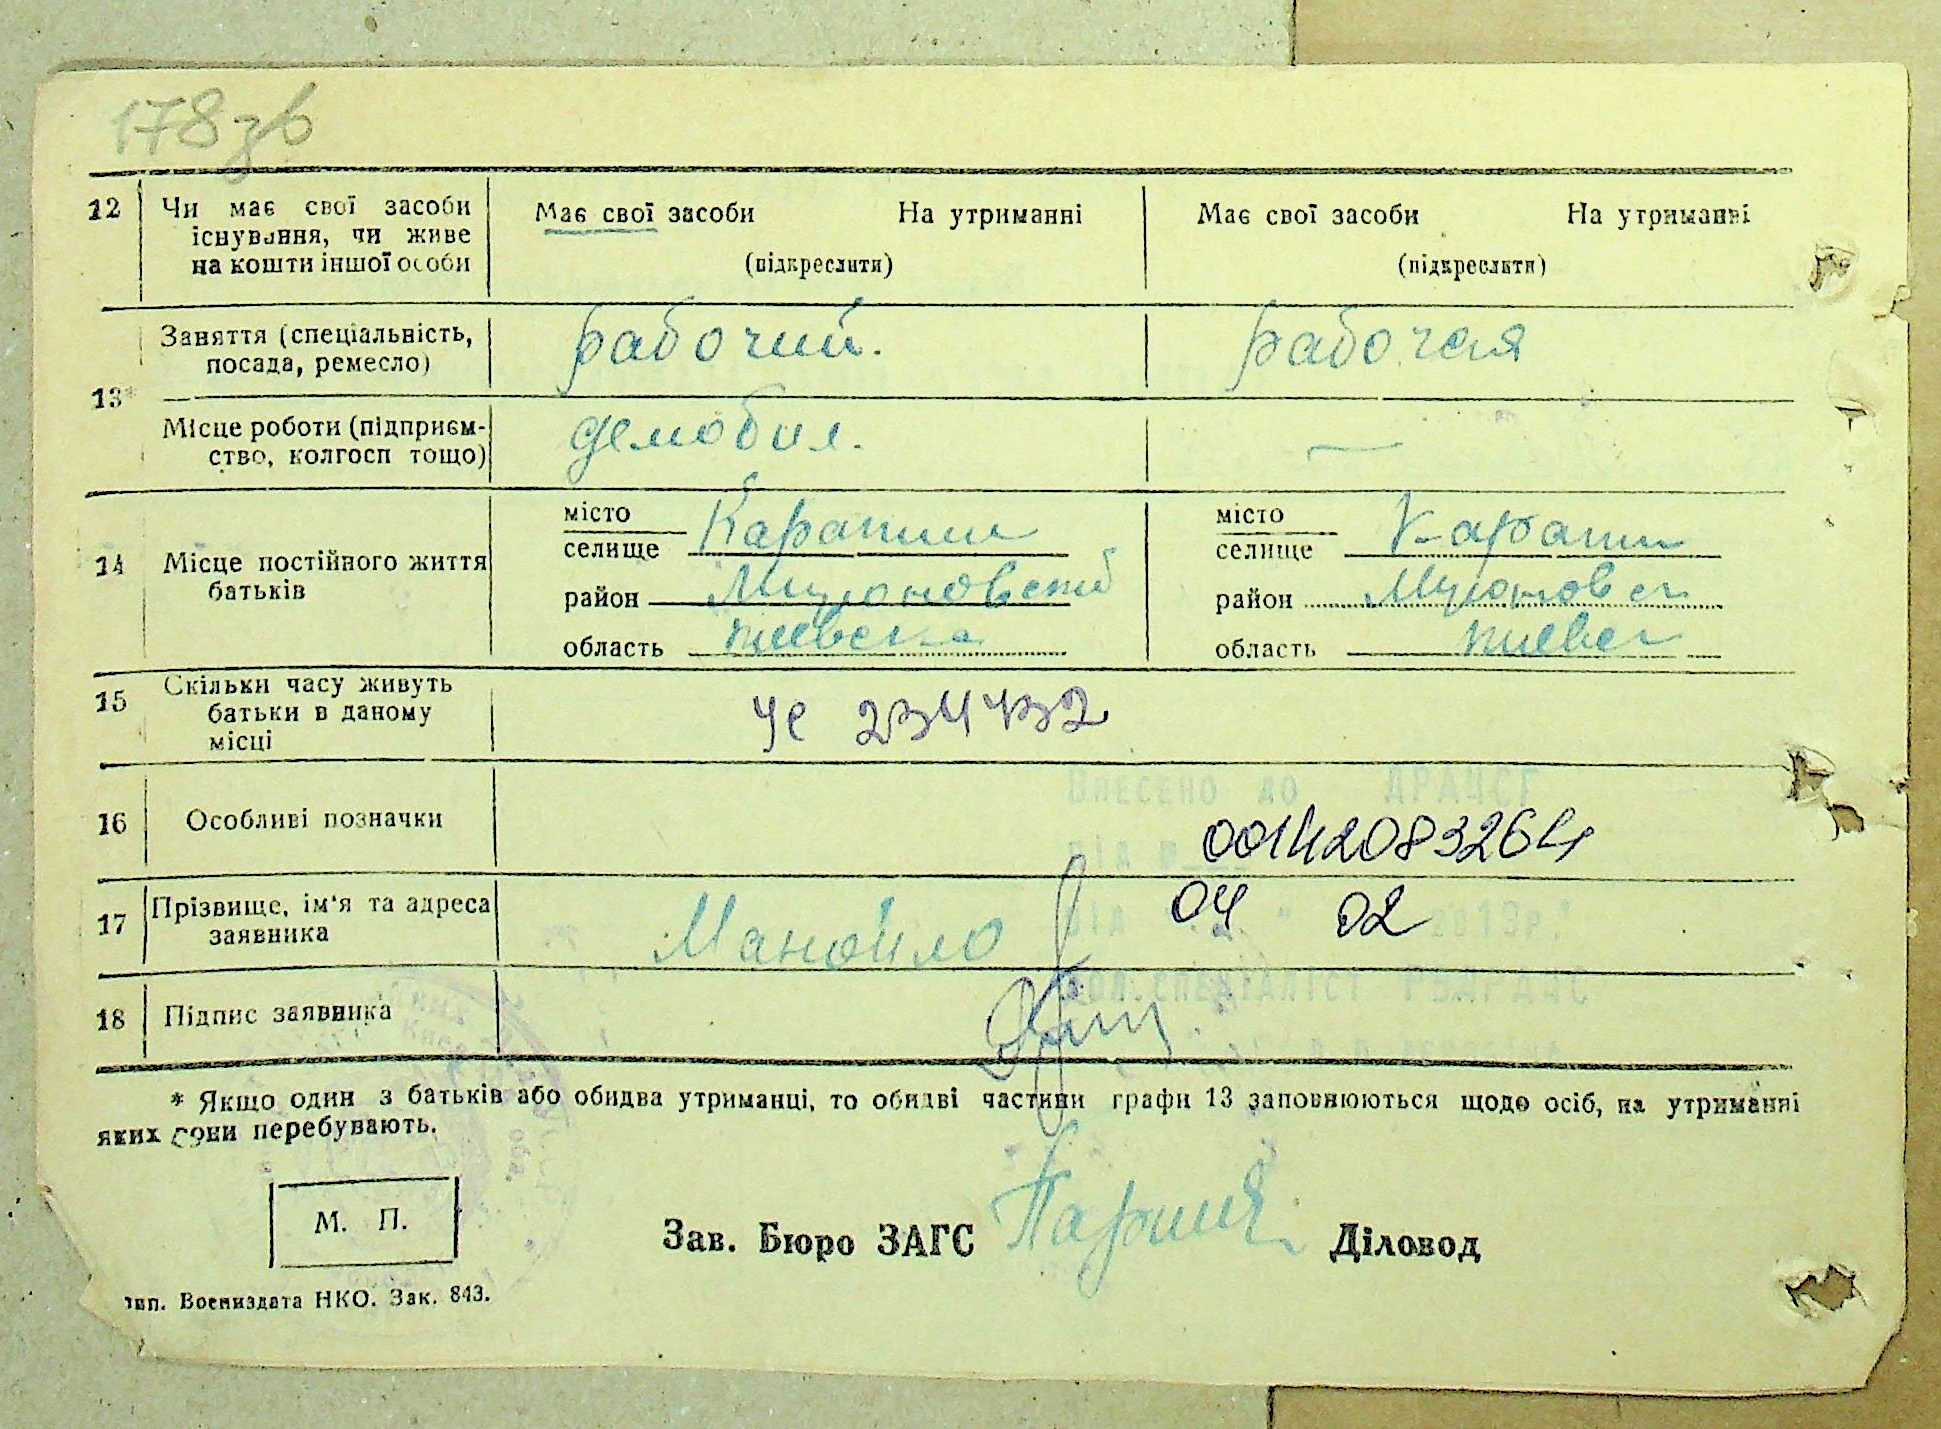 178зв
12 Чи має свої засоби існування, чи живе на кошти іншої особи
Має свої засоби На утриманні
(підкреслити)
Має свої засоби На утриманні
(підкреслити)
13*
Заняття (спеціальність, посада, ремесло)
рабочий.
рабочая
Місце роботи (підприємство, колгосп тощо)
демобил.
—
14 Місце постійного життя батьків
місто
селище Карапиши
район
область
місто
селище Карапиши
район
область
15 Скільки часу живуть батьки в даному місці
16 Особливі позначки
Внесено до ДРАЦСГ
00142083264
17 Прізвище, ім'я та адреса заявника
Манойло
від 04 " 02 2013р.
18 Підпис заявника
* Якщо один з батьків або обидва утриманці, то обидві частини графи 13 заповнюються щодо осіб, на утриманні
яких вони перебувають.
М. П.
Зав. Бюро ЗАГС Діловод
Тип. Воениздата НКО. Зак. 843.